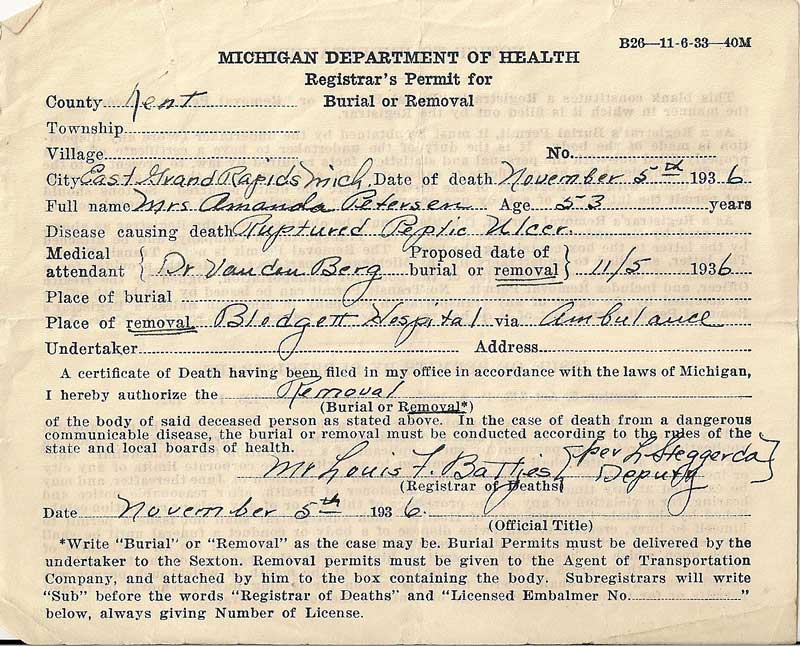 B26—11-6-33—40M
MICHIGAN DEPARTMENT OF HEALTH
Registrar's Permit for
County Kent Burial or Removal
Township
Village No.
City East Grand Rapids Mich. Date of death November 5th 1936
Full name Mrs Amanda Petersen Age 53 years
Disease causing death Ruptured Peptic Ulcer.
Medical attendant { Dr Vanden Berg Proposed date of burial or removal } 11/5 1936
Place of burial
Place of removal Blodgett Hospital via Ambulance
Undertaker Address
A certificate of Death having been filed in my office in accordance with the laws of Michigan,
I hereby authorize the Removal
(Burial or Removal*)
of the body of said deceased person as stated above. In the case of death from a dangerous
communicable disease, the burial or removal must be conducted according to the rules of the
state and local boards of health.
Mr Louis F. Battjes { per L Steggerda }
(Registrar of Deaths) Deputy
Date November 5th 1936.
(Official Title)
*Write "Burial" or "Removal" as the case may be. Burial Permits must be delivered by the
undertaker to the Sexton. Removal permits must be given to the Agent of Transportation
Company, and attached by him to the box containing the body. Subregistrars will write
"Sub" before the words "Registrar of Deaths" and "Licensed Embalmer No. "
below, always giving Number of License.